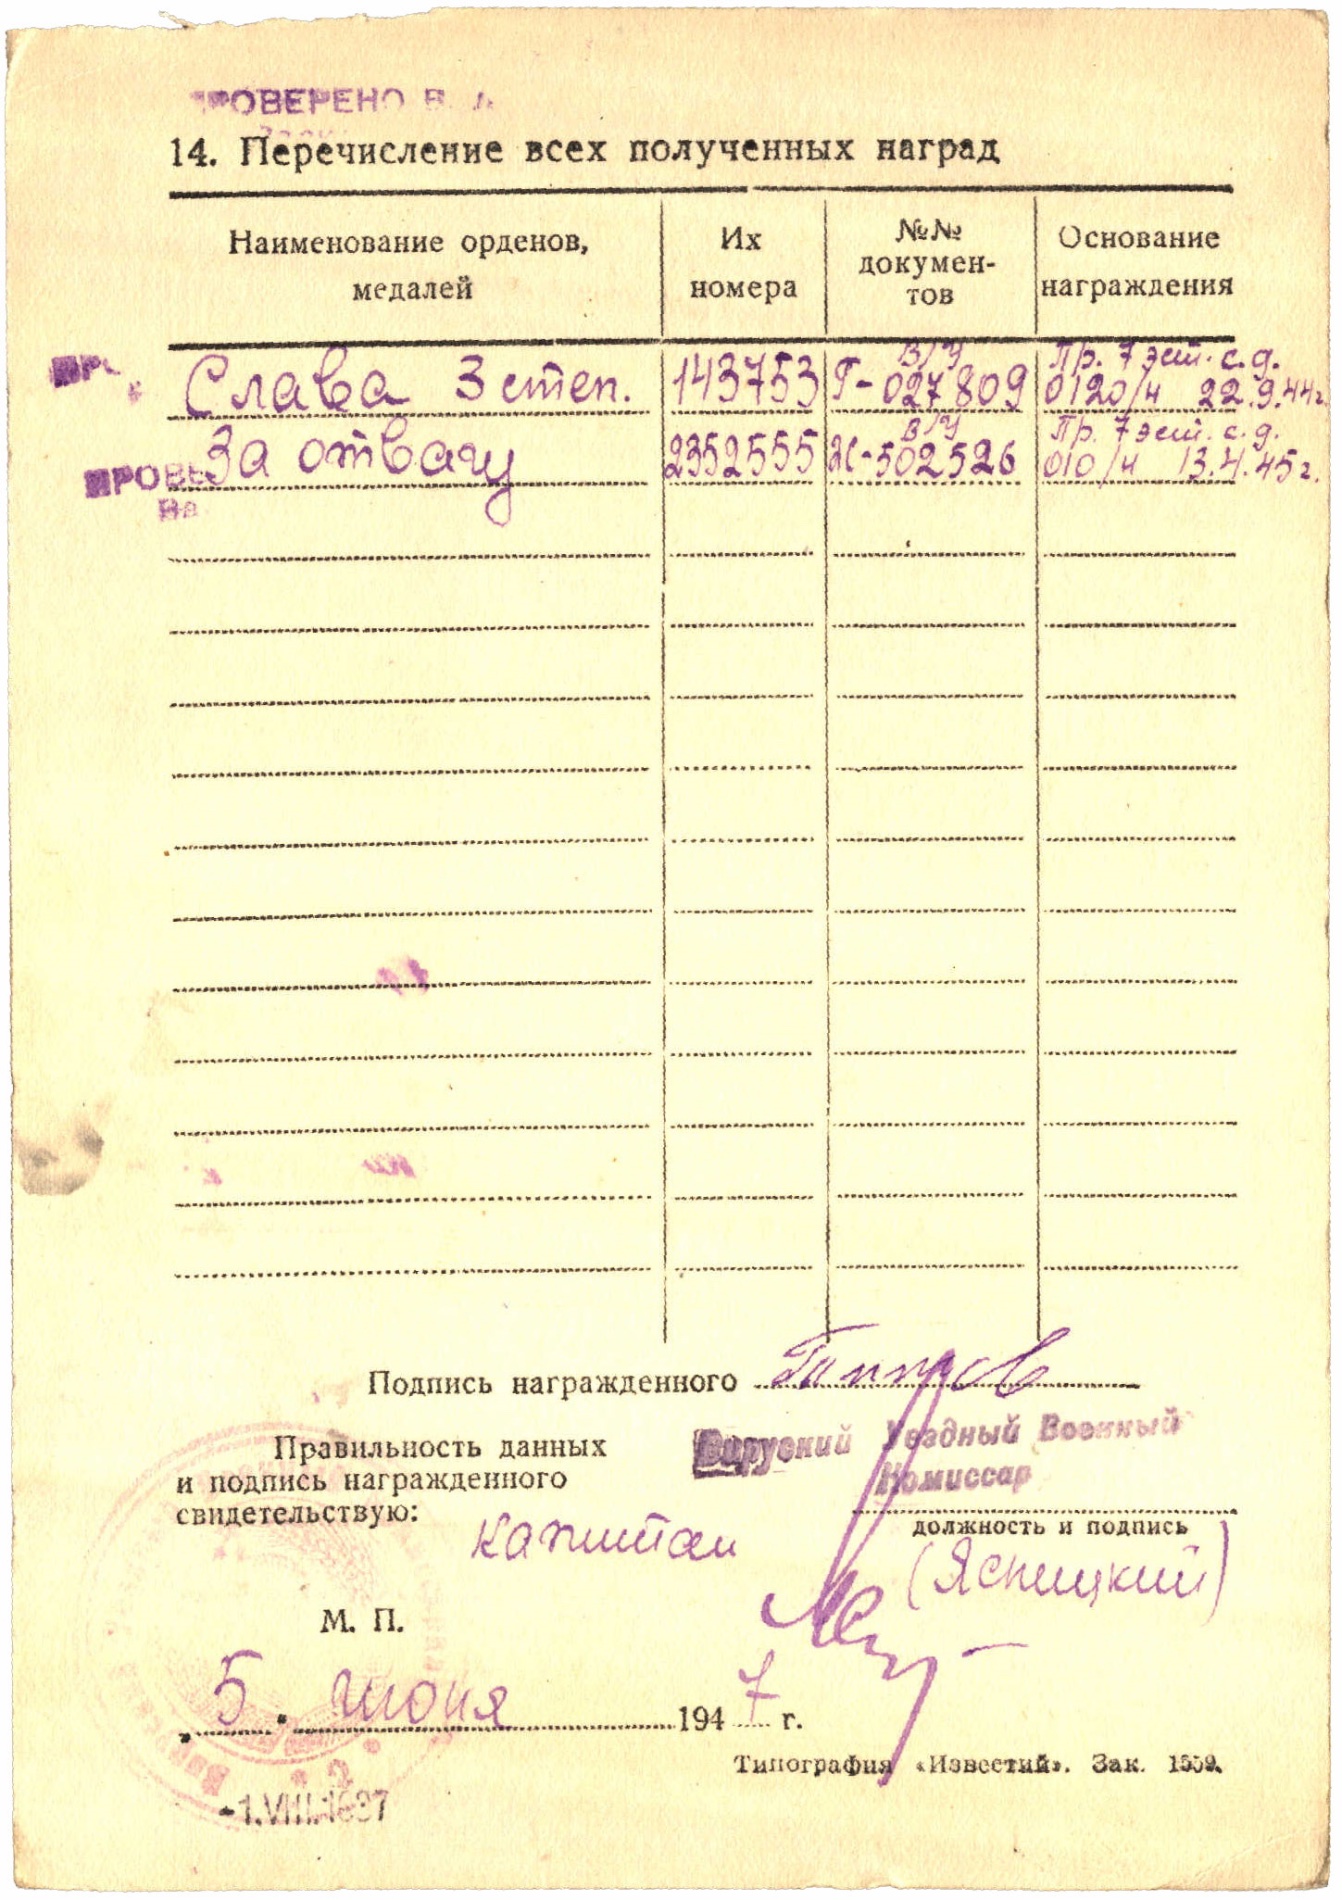 ПРОВЕРЕНО В.
14. Перечисление всех полученных наград
Наименование орденов, медалей
Их номера
№№ докумен-тов
Основание награждения
Слава 3 степ. 143753 в/у Г-027809 Пр. 7 эст. с.д. 0120/н 22.9.44г.
За отвагу 2352555 в/у Ж-502526 Пр. 7 эст. с.д. 010/н 13.4.45г.
ПРОВЕ
Подпись награжденного
Правильность данных
и подпись награжденного
свидетельствую:
Выруский Уездный Военный
Комиссар
должность и подпись
капитан
(Ясницкий)
М. П.
„5" июня 1947 г.
Типография «Известий». Зак. 1559.
-1.VIII.